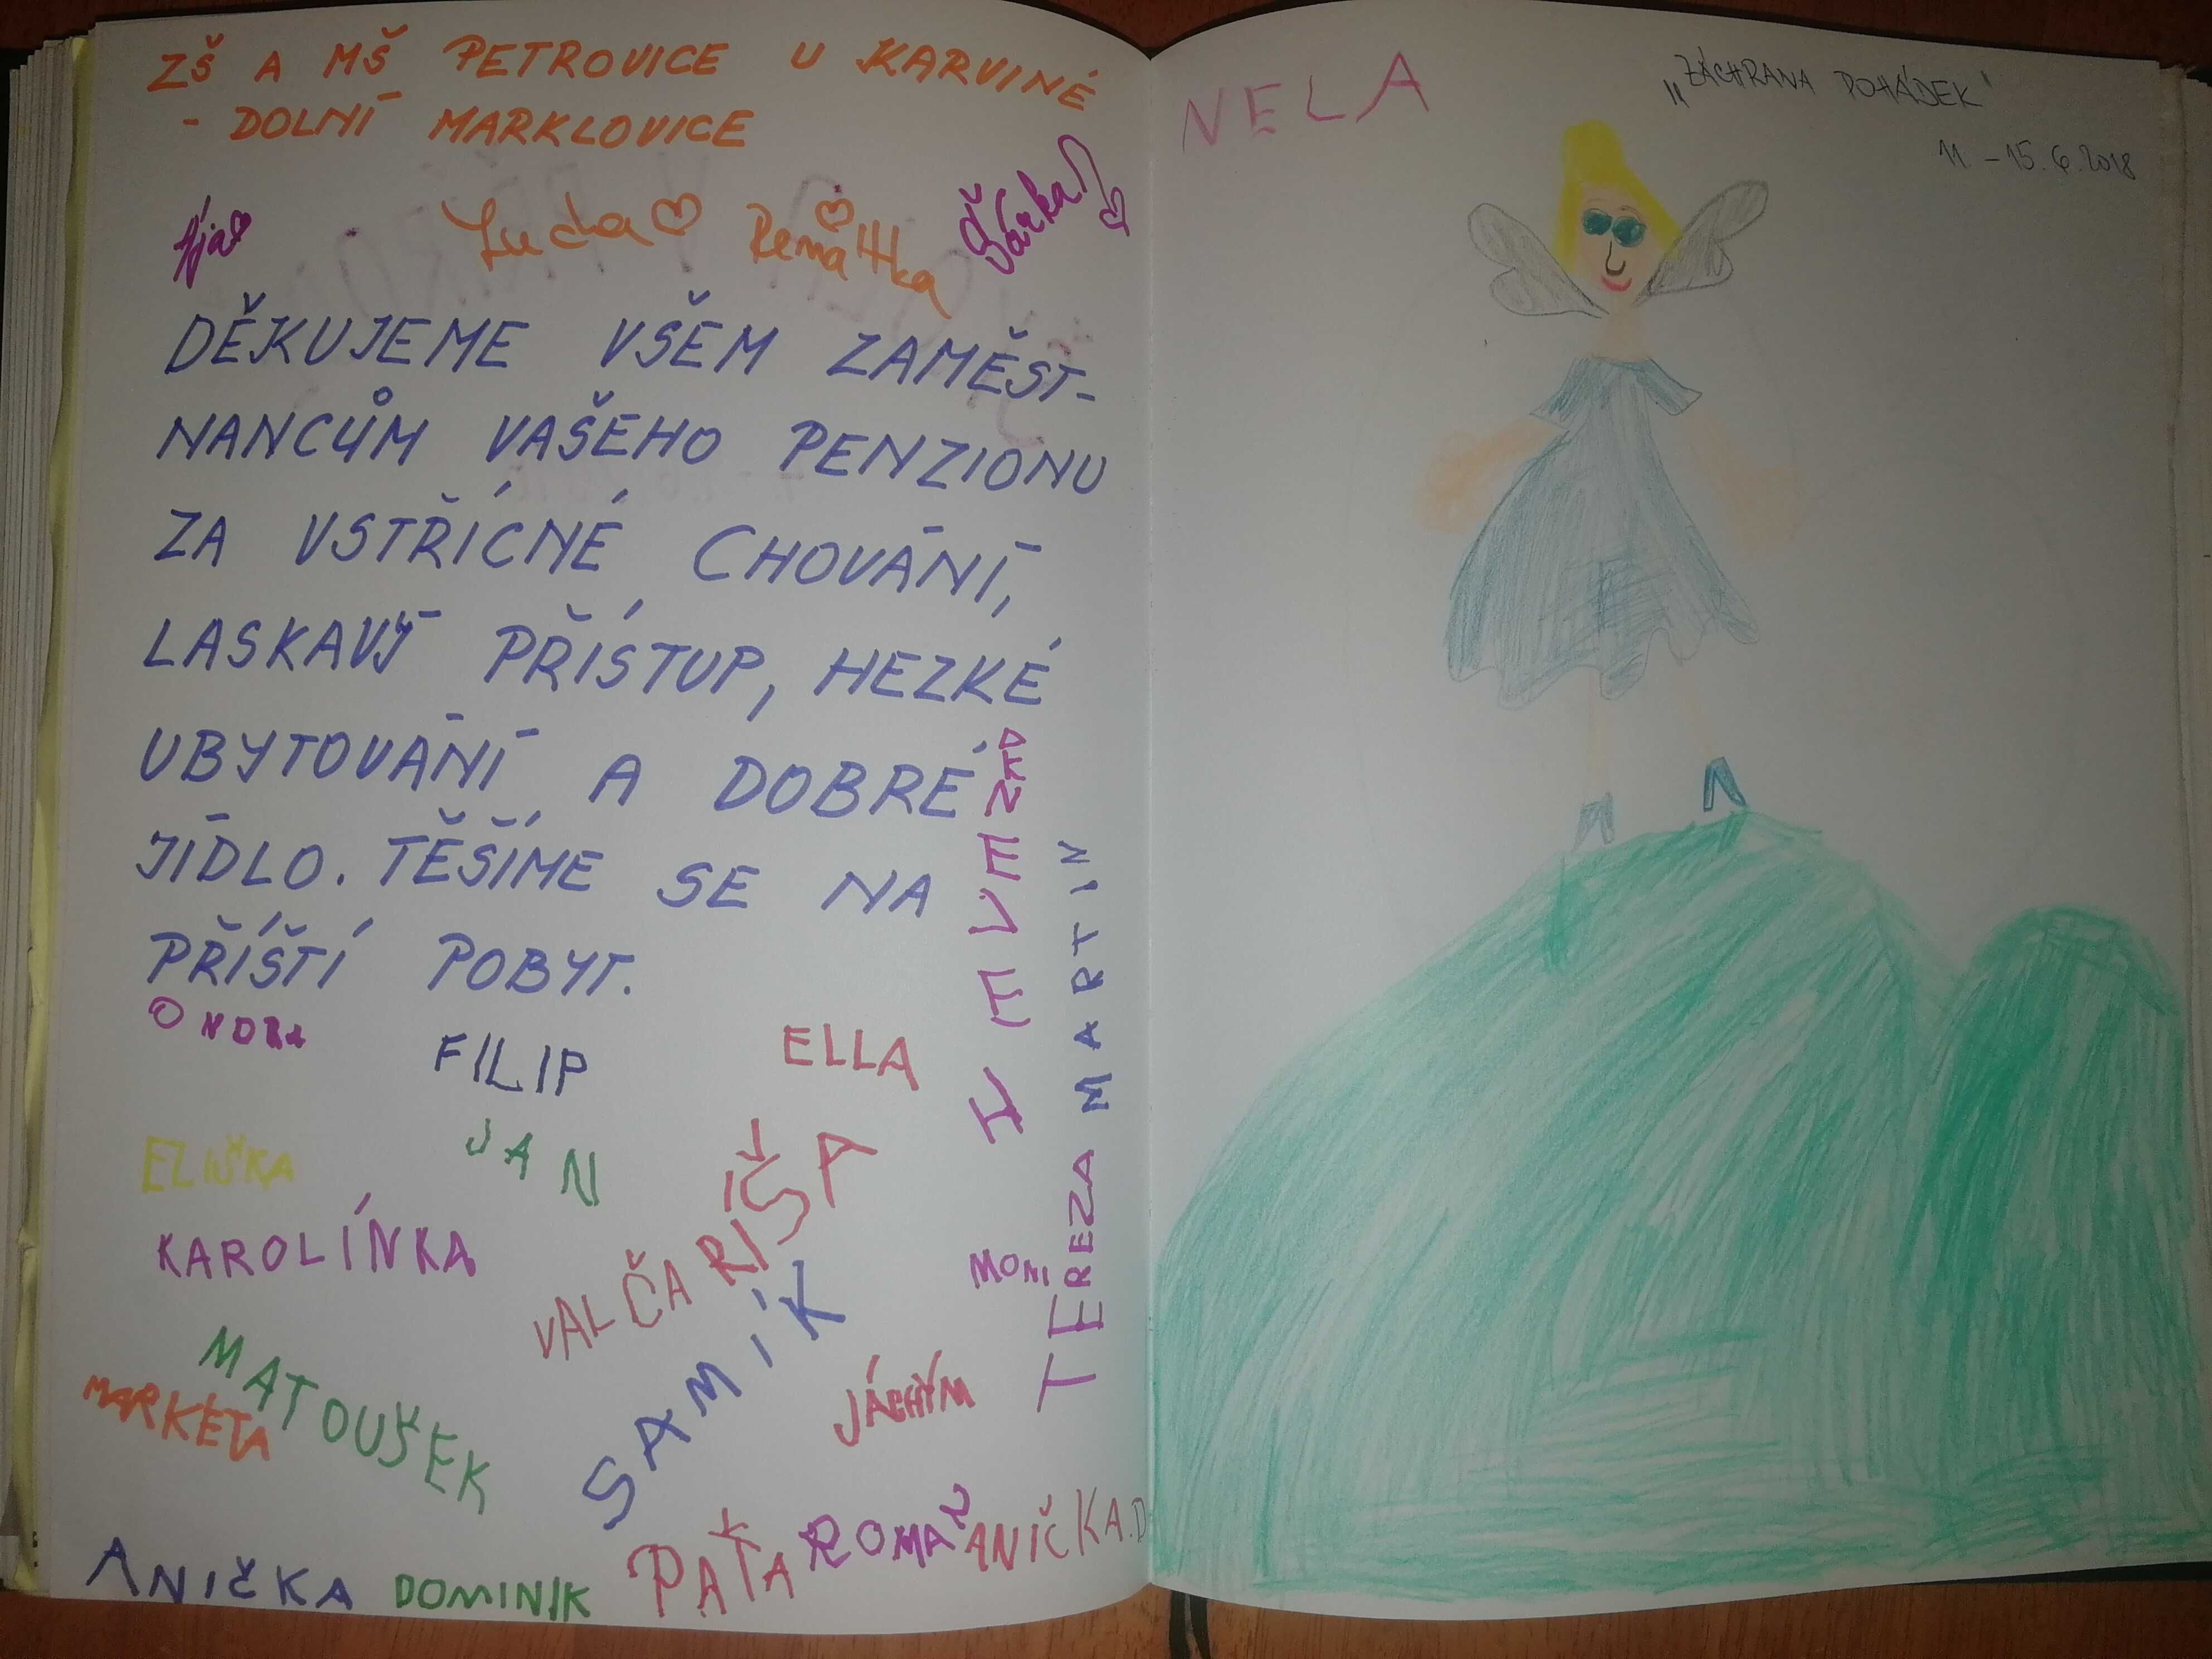 ZŠ A MŠ PETROVICE U KARVINÉ
- DOLNÍ MARKLOVICE
Ája
Lucka
Renáttka
Šárka
DĚKUJEME VŠEM ZAMĚST-
NANCŮM VAŠEHO PENZIONU
ZA VSTŘÍCNÉ CHOVÁNÍ,
LASKAVÝ PŘÍSTUP, HEZKÉ
UBYTOVÁNÍ A DOBRÉ
JÍDLO. TĚŠÍME SE NA
PŘÍŠTÍ POBYT.
ONDRA
FILIP
ELLA
MARTIN
ELIŠKA
JAN
KAROLÍNKA
VALČA
RÍŠA
MONI
TEREZA
MATOUŠEK
MARKÉTA
SAMÍK
JÁCHYM
ANIČKA
DOMINIK
PAŤA
ROMAN
ANIČKA.D
NELA
„ZÁCHRANA POHÁDEK"
11. - 15.6.2018